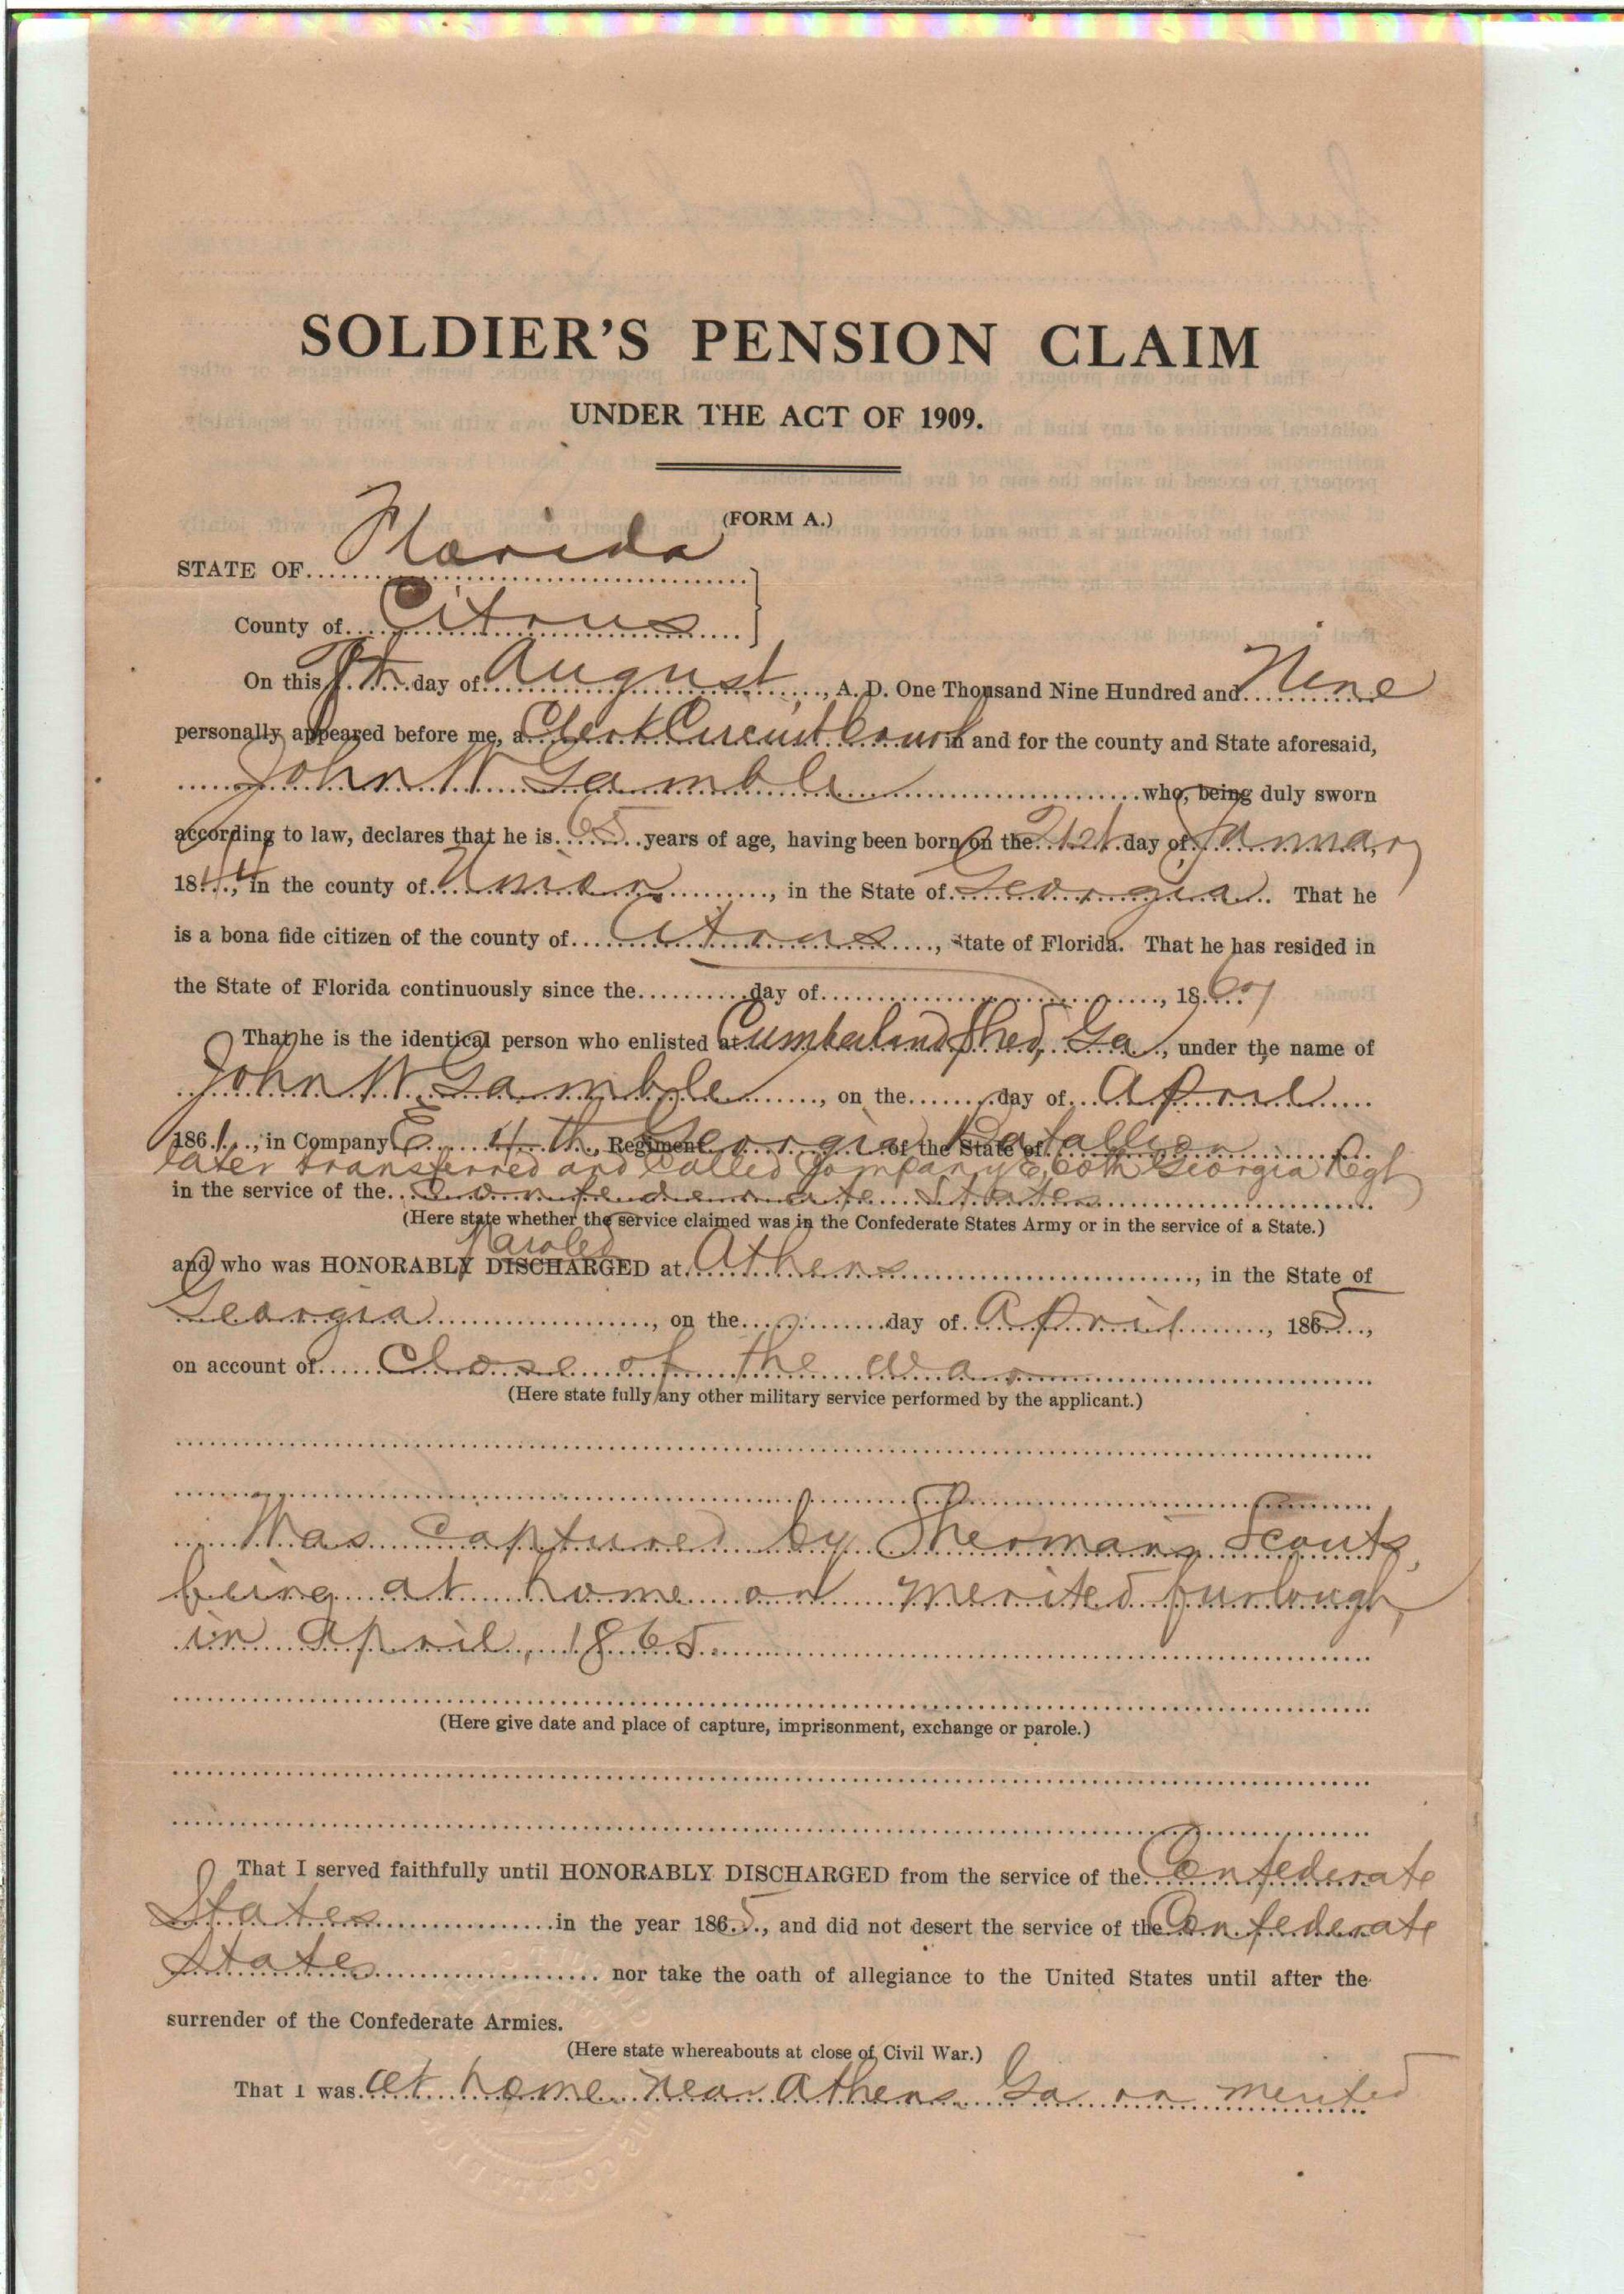 SOLDIER'S PENSION CLAIM
UNDER THE ACT OF 1909.
(FORM A.)
STATE OF Florida
County of Citrus
On this 7th day of August, A. D. One Thousand Nine Hundred and Nine
personally appeared before me, a Clerk Circuit Court in and for the county and State aforesaid,
John W Gamble who, being duly sworn
according to law, declares that he is 65 years of age, having been born on the 21st day of January
1844, in the county of Union, in the State of Georgia. That he
is a bona fide citizen of the county of Citrus, State of Florida. That he has resided in
the State of Florida continuously since the day of, 18
That he is the identical person who enlisted at Cumberland, Ga, under the name of
John W Gamble, on the day of April
1861, in Company E 4th Regiment Georgia of the State of Batallion
later transferred and Called Company E, 60th Georgia Regt
in the service of the Confederate States
(Here state whether the service claimed was in the Confederate States Army or in the service of a State.)
Paroled
and who was HONORABLY DISCHARGED at Athens, in the State of
Georgia, on the day of April, 1865,
on account of Close of the War
(Here state fully any other military service performed by the applicant.)
Was Captured by Shermans Scouts,
being at home on merited furlough,
in April, 1865
(Here give date and place of capture, imprisonment, exchange or parole.)
That I served faithfully until HONORABLY DISCHARGED from the service of the Confederate
States in the year 1865, and did not desert the service of the Confederate
States nor take the oath of allegiance to the United States until after the
surrender of the Confederate Armies.
(Here state whereabouts at close of Civil War.)
That I was at home near Athens Ga on merited